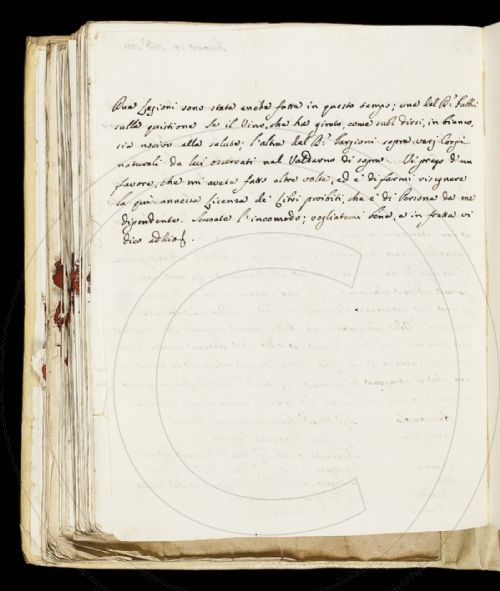 Due Lezioni sono state anche fatte in questo tempo; una del D.r Fabbri
sulla quistione Se il Vino, che ha girato, come suol dirsi, in bianco,
sia nocivo alla salute; l'altra del D.r Targioni sopra varj Corpi
naturali da lui osservati nel Valdarno di sopra. Vi prego d'un
favore, che mi avete fatto altre volte, ed è di farmi risegnare
la qui annessa Licenza de' Libri proibiti, che è di Persona da me
dipendente. Scusate l'incomodo; vogliatemi bene, e in fretta vi
dico addio.